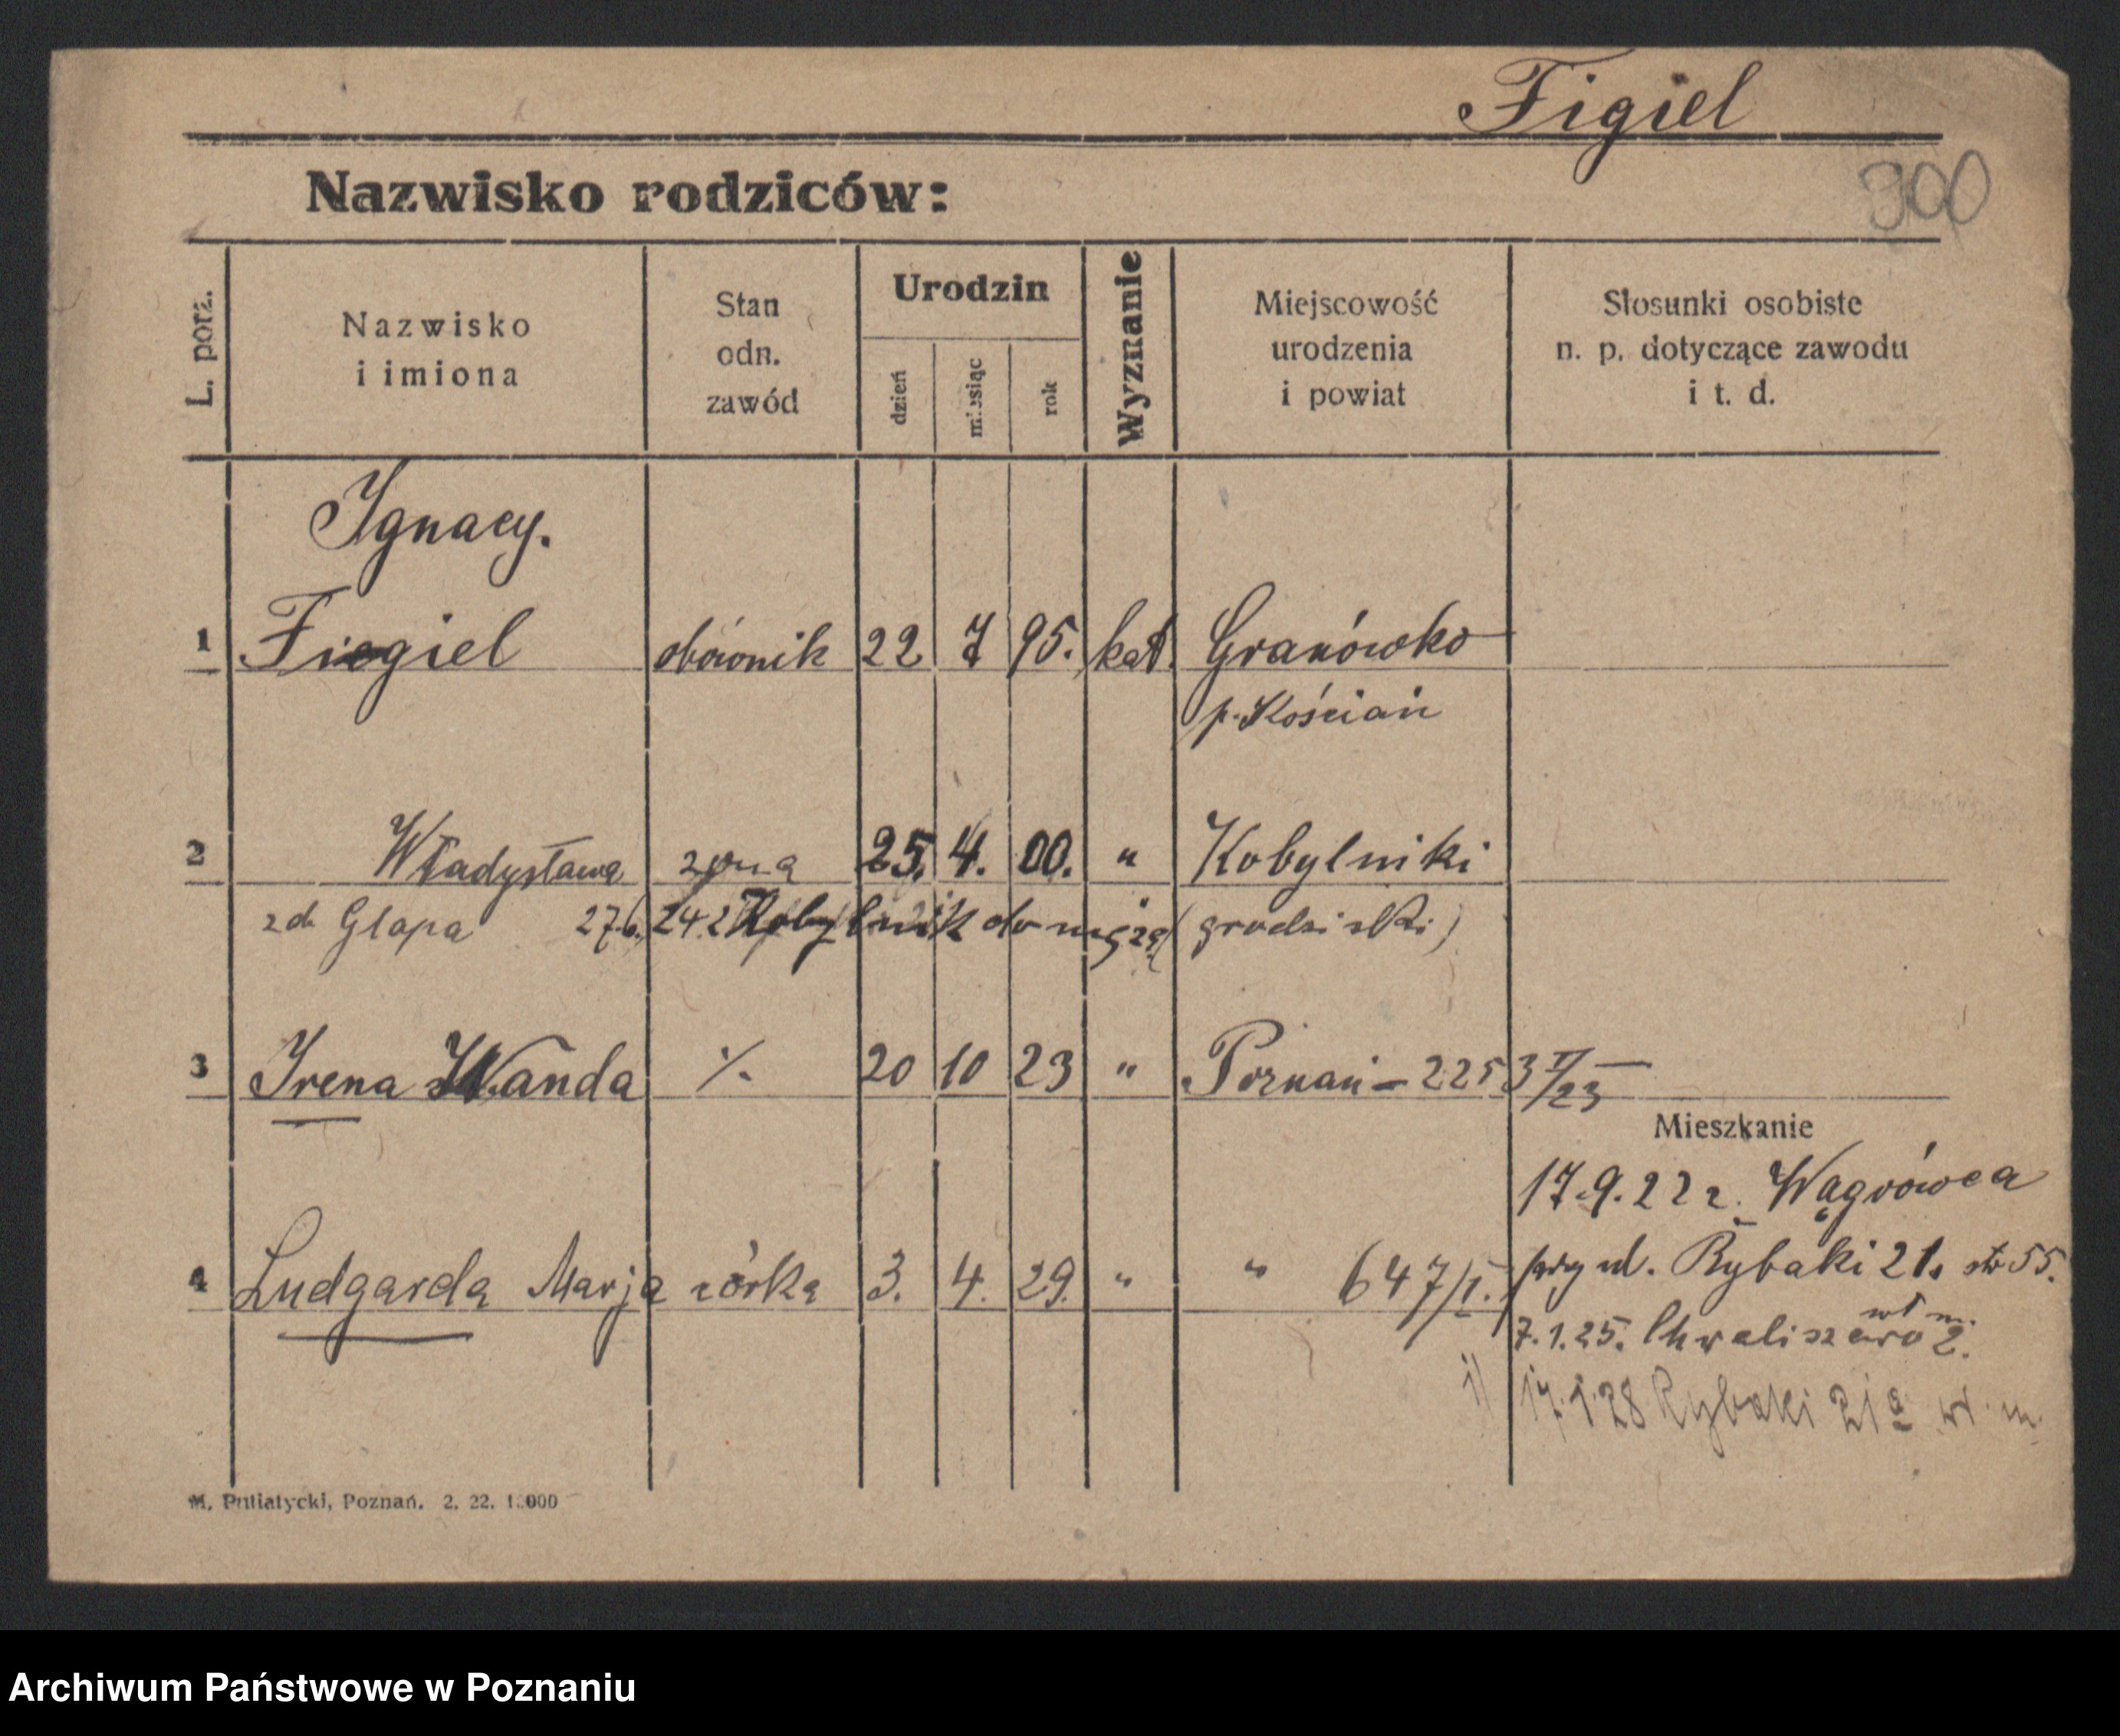 Figiel
Nazwisko rodziców:
300
L. porz.
Nazwisko
i imiona
Stan
odn.
zawód
Urodzin
dzień
miesiąc
rok
Wyznanie
Miejscowość
urodzenia
i powiat
Stosunki osobiste
n. p. dotyczące zawodu
i t. d.
Ignacy.
1 Fiegiel obównik 22 7 95. kat. Granówko
p. Kościan
2 Władysława żona 25. 4. 00. " Kobylniki
zd. Glapa 27.6. 24. z Kobylnik do męża (grodziski)
3 Irena Wanda ·/. 20 10 23 " Poznań - 2253 II/23
Mieszkanie
17.9.22 z Wągrówca
4 Ludgarda Marja córka 3. 4. 29. " " 647/I. przy ul. Rybaki 21. str 55.
wł m.
7.1.25. Chwaliszewo 2.
1) 17.1.28 Rybaki 21a wł. m.
M. Putiatycki, Poznań. 2. 22. 10000
Archiwum Państwowe w Poznaniu